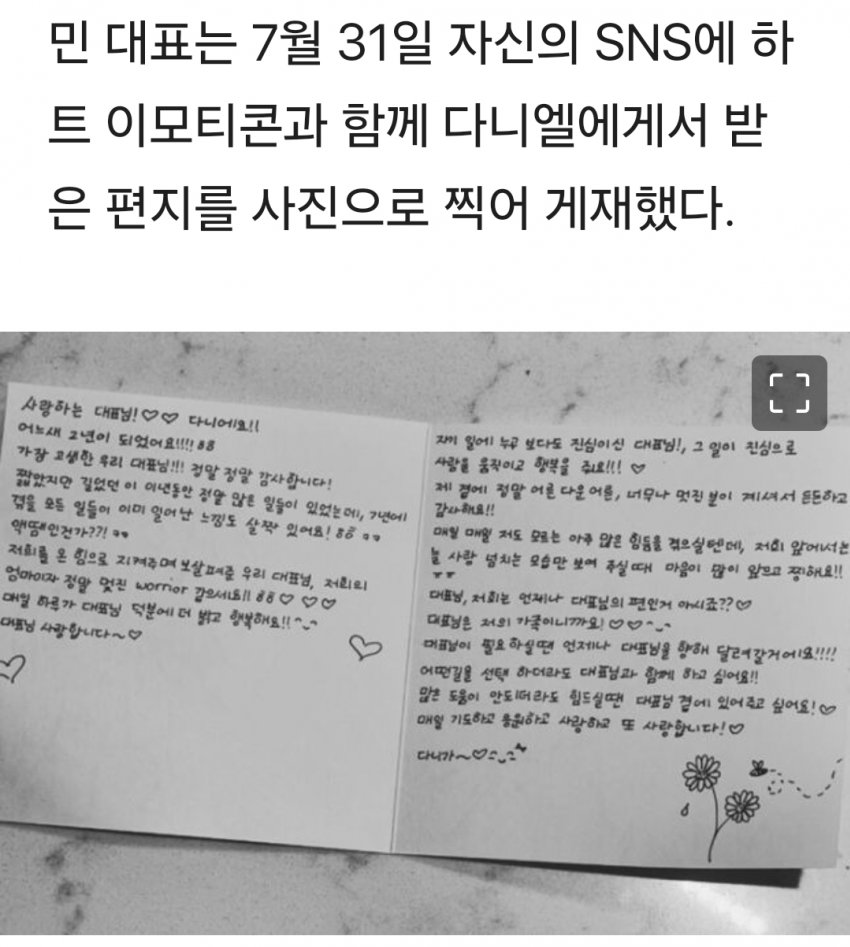 민 대표는 7월 31일 자신의 SNS에 하
트 이모티콘과 함께 다니엘에게서 받
은 편지를 사진으로 찍어 게재했다.
사랑하는 대표님!♡♡ 다니에요!!
어느새 2년이 되었어요!!!!
가장 고생한 우리 대표님!!! 정말 정말 감사합니다!
짧았지만 길었던 이 이년동안 정말 많은 일들이 있었는데, 7년에
겪을 모든 일들이 이미 일어난 느낌도 살짝 있어요!
액땜인건가??!
저희를 온 힘으로 지켜주며 보살펴준 우리 대표님, 저희의
엄마이자 정말 멋진 worrior 같으세요!! ♡♡♡
매일 하루가 대표님 덕분에 더 밝고 행복해요!! ^_^
대표님 사랑합니다~♡
자기 일에 누구 보다도 진심이신 대표님!, 그 일이 진심으로
사람을 움직이고 행복을 줘요!!! ♡
제 곁에 정말 어른 다운 어른, 너무나 멋진 분이 계셔서 든든하고
감사해요!!
매일 매일 저도 모르는 아주 많은 힘듦을 겪으실텐데, 저희 앞에서는
늘 사랑 넘치는 모습만 보여 주실때 마음이 많이 아프고 찡해요!!
ㅠㅠ
대표님, 저희는 언제나 대표님의 편인거 아시죠??♡
대표님은 저의 가족이니까요! ♡♡^_^
대표님이 필요하실땐 언제나 대표님을 향해 달려갈거에요!!!!
어떤길을 선택 하더라도 대표님과 함께 하고 싶어요!!
많은 도움이 안되더라도 힘드실땐 대표님 곁에 있어주고 싶어요!♡
매일 기도하고 응원하고 사랑하고 또 사랑합니다!♡
다니가~♡